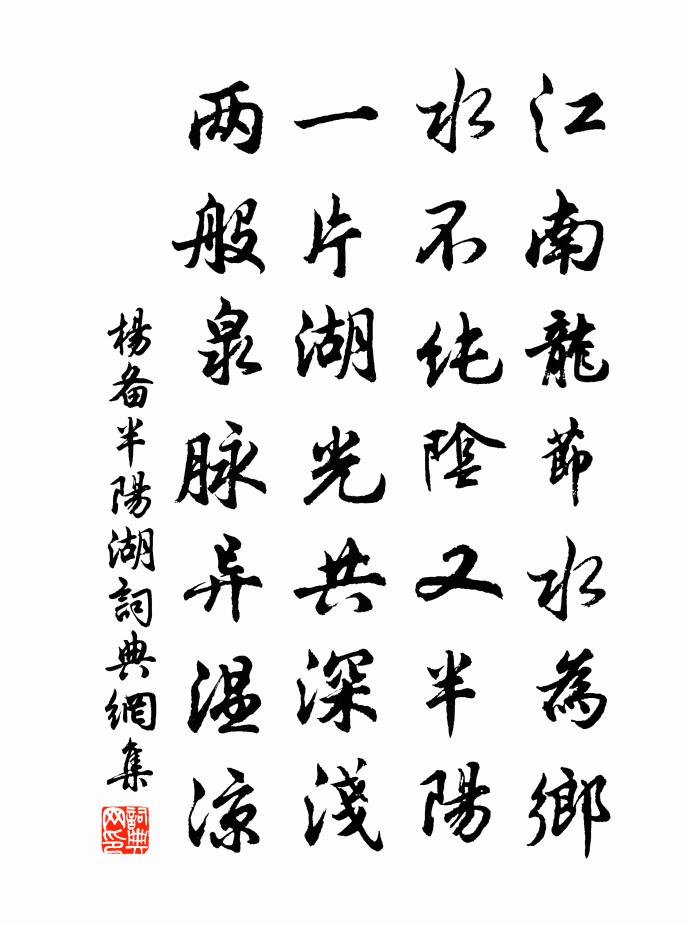 江南龍節水為鄉
水不純陰又半陽
一片湖光共深淺
两般泉脉异温凉
楊备半陽湖詞典網集
詞典网印